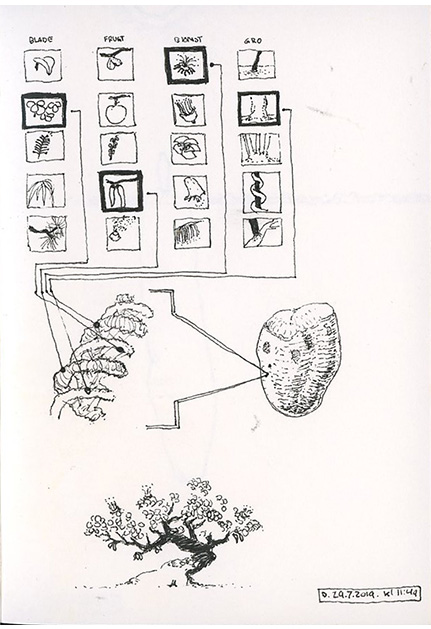 BLADE FRUGT BLOMST GRO
D. 29.7.2019. kl 11:49